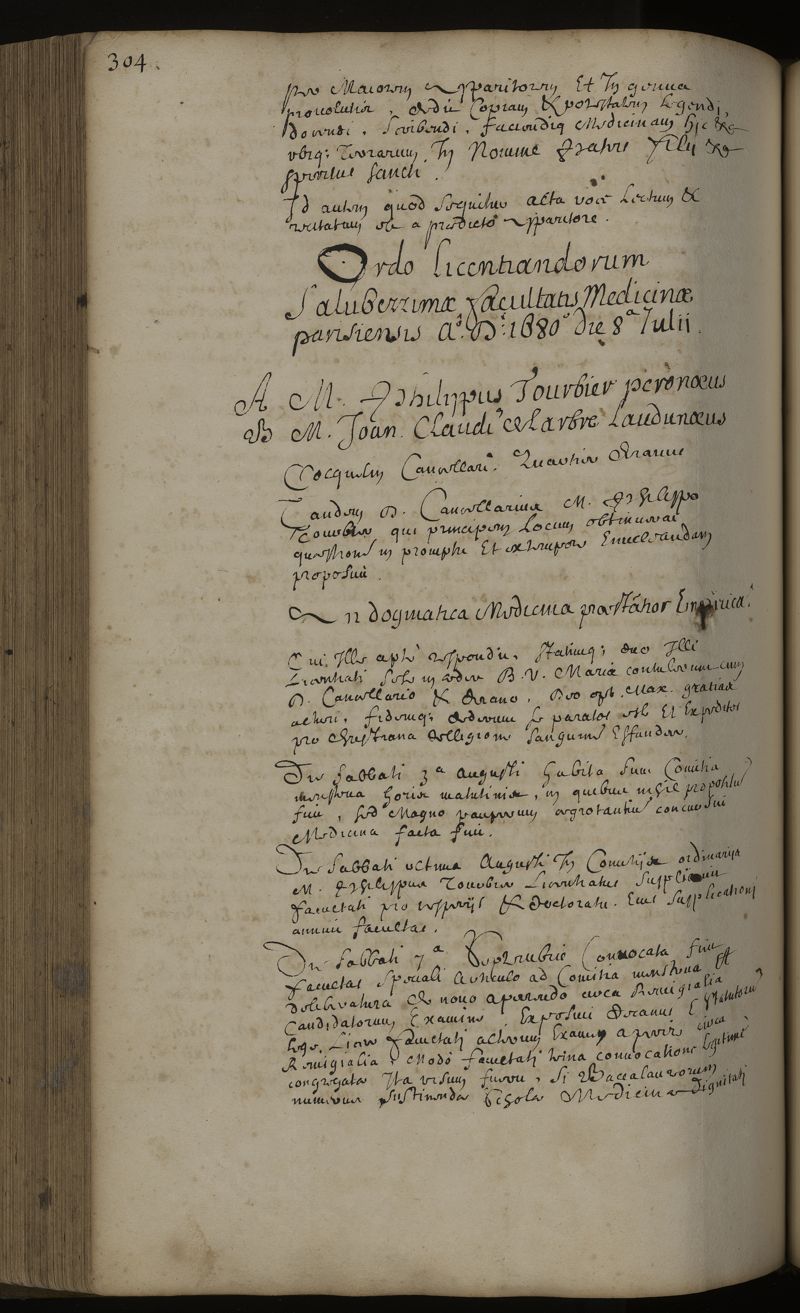 304.
pro Maiorem Apparitorem Et In genua
provolutis, dedit Copiam & potestatem Legendi,
Docendi, Scribendi, faciendiq Medicinam hic &
ubiq; Terrarum, In Nomine Patris Filii &
Spiritus Sancti.
Id autem quod sequitur alta voce Lectum &
recitatum est a praedicto Apparitore.
Ordo licentiandorum
Saluberrimæ facultatis Medicinæ
parisiensis Ao. D: 1680o die 8a Iulii.
A M. Philippus Tourbier peronæus
B M. Joan. Claudi9 Delarbre Laudunæus
Cancellari9.
Tandem D. Cancellarius M. Philippo
Tourbier qui principem Locum obtinuerat
quæstionem in promptu Et extempore Enucleandam
proposuit.
An dogmatica Medicina præstantior Empirica?
Cui Ille apte respondit, statimq; duo Illi
Licentiati in æde B. V. Mariæ cum
D. Cancellario & Decano, Deo opt. Max. gratias
fidemq; dederunt se paratos esse Et Expeditos
pro Christiana Religione sanguinem Effundere.
Die Sabbati 3a Augusti habita sunt Comitia
menstrua horis matutinis, in quibus nihil propositum
fuit, sed Magno pauperum ægrotantium concursui
Medicina facta fuit.
Die Sabbati ultima Augusti In Comitiis ordinariis
M. Philippus Tourbier Licentiatus Supplicavit
facultati pro vesperiis & Doctoratu. Eius Supplicationi
annuit facultas.
Die Sabbati 7a Septembris Convocata fuit
facultas speciali Articulo ad Comitia menstrua Et
deliberatura De novo aperiendo circa Remigialia
Candidatorum Examine. Exposuit Decanus E Statutorum
Lege Licere facultati alterum Examen aperire circa
Remigialia, Modo facultati trina convocatione Legitime
congregatæ Ita visum fuerit, si Baccalaureorum
numerus sustinendæ Scholæ Medicinæ dignitati